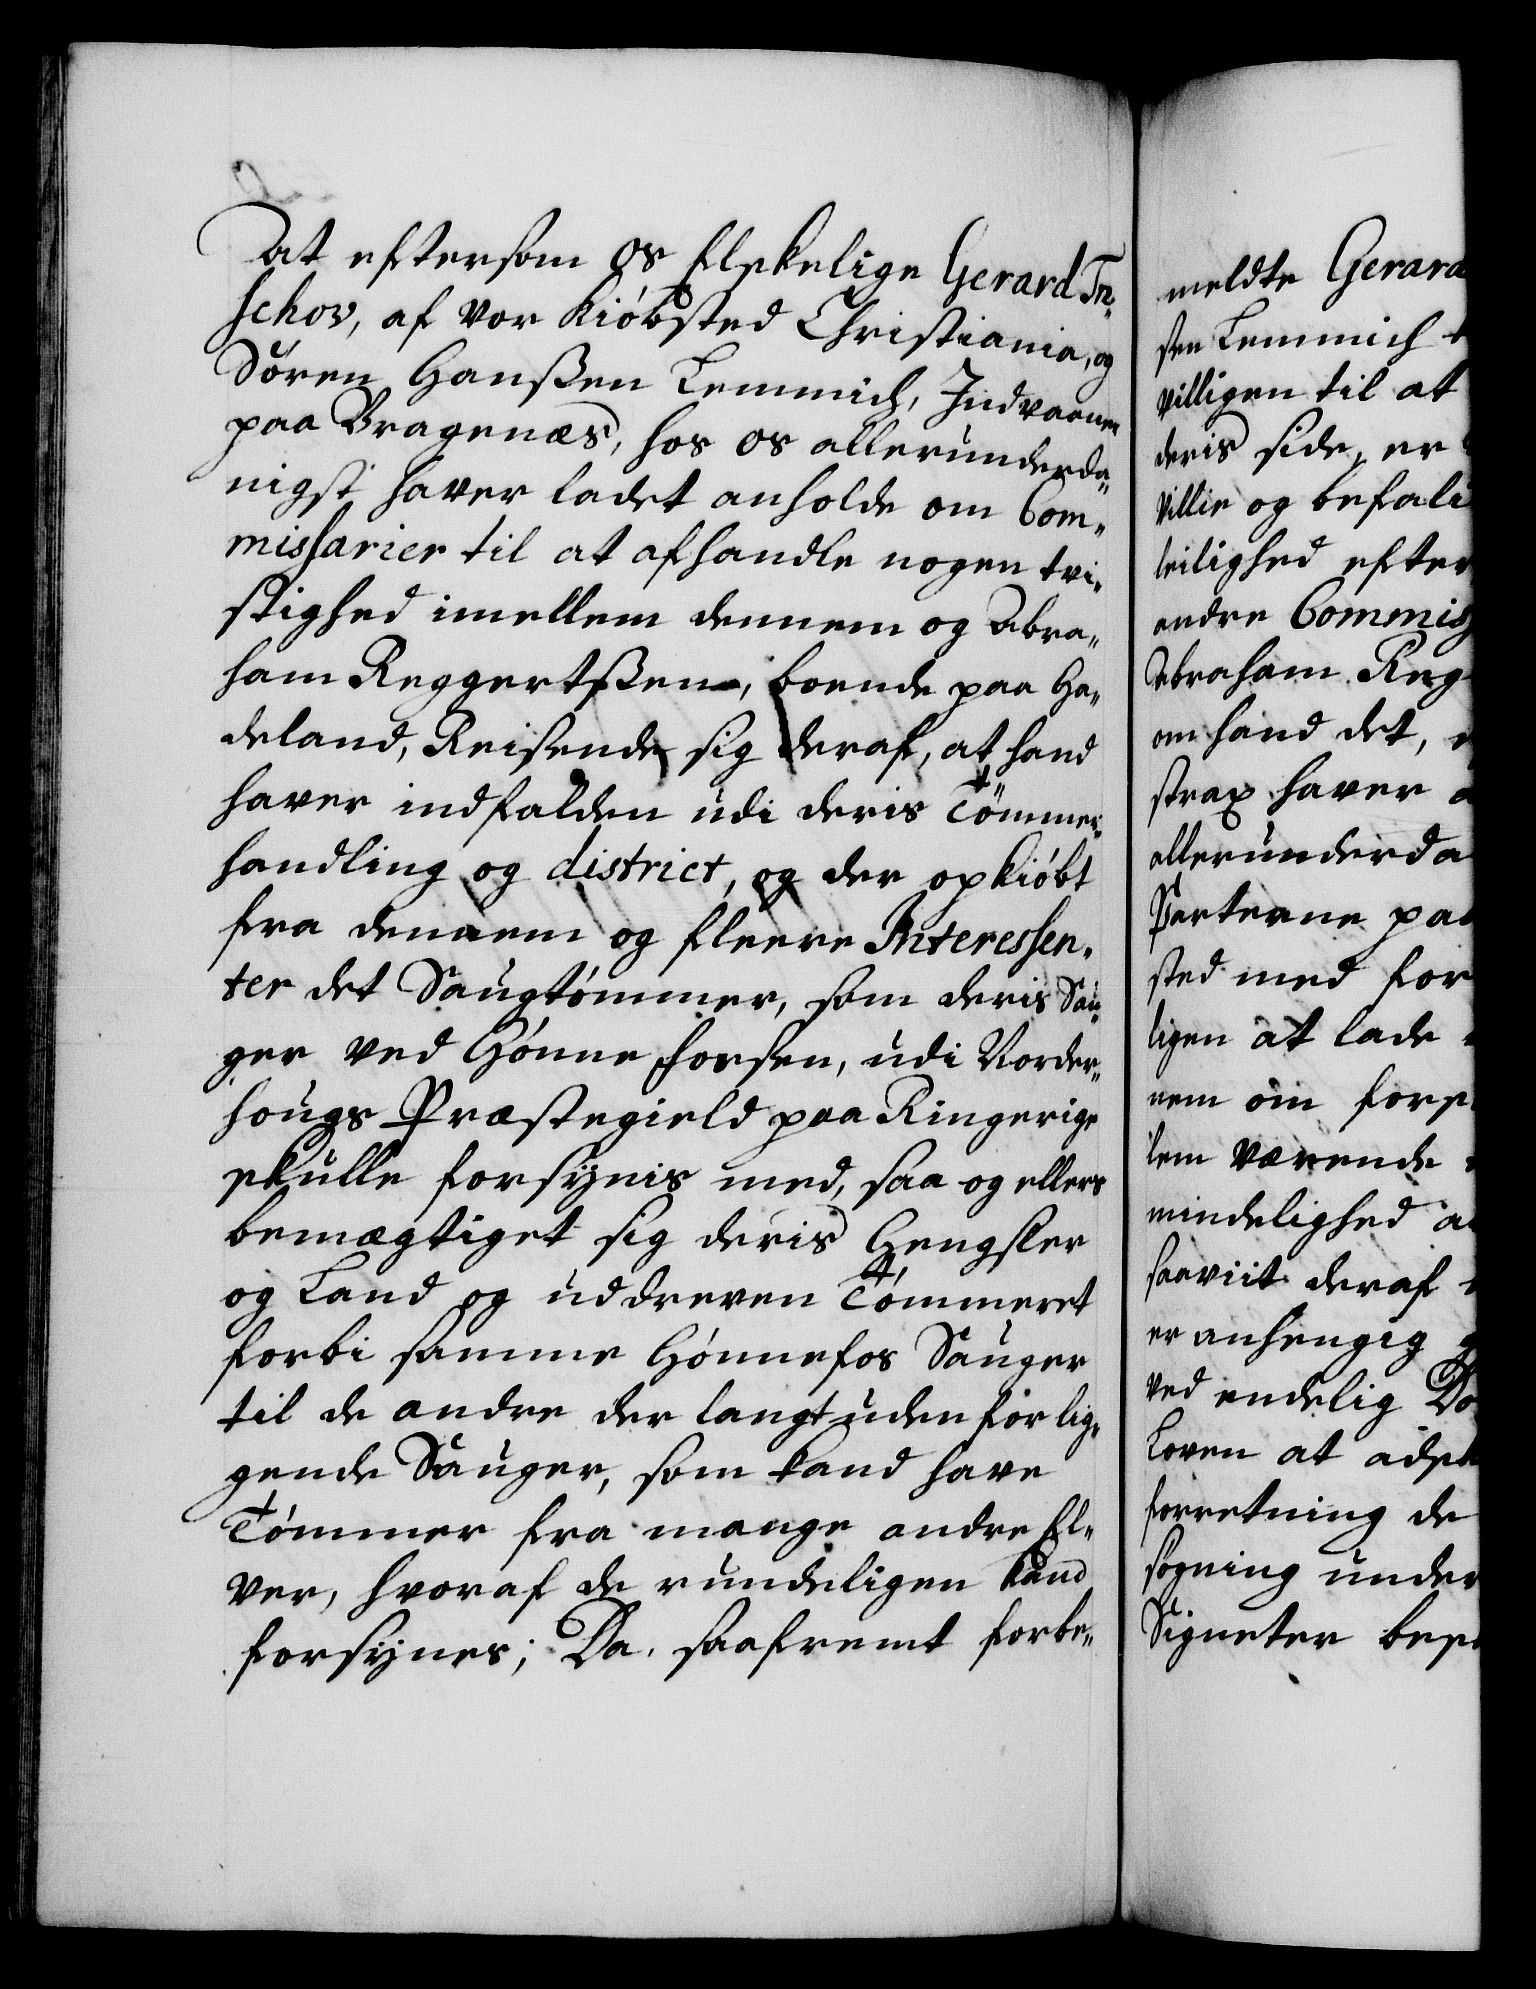 At eftersom os Elskelige Gerard Tre„
schov, af vor Kiöbsted Christiania, og
Sören Hanßen Lemmich, Indvaaner
paa Bragenæs, hos os allerunderda„
nigst haver ladet anholde om Com„
missarier til at afhandle nogen tvi„
stighed imellem dennem og Abra„
ham Reggertßen, boende paa Ha„
deland, Reisende sig deraf, at hand
haver indfalden udi deris Tömmer„
handling og district, og der opkiöbt
fra dennem og fleere Interessen„
ter det Saugtömmer, som deris Sau„
ger ved Hönne forsen, udi Norder„
hougs Præstegield paa Ringerige
skulle forsÿnis med, saa og ellers
bemægtiget sig deris Hengsler
og Land og uddreven Tömmeret
forbi samme Hönnefos Sauger
til de andre der langt uden for lig„
gende Sauger, som kand have
Tömmer fra mange andre El„
ver, hvoraf de rundeligen kand
forsÿnes; Da, saafremt forbe„
meldte Gerard
sen Lemmich
villigen til at
deris side, er
villie og befali
leilighed efter
andre Commis
Abraham Reg
om hand det,
strax haver
allerunderda
Parterne paa
sted med for
ligen at lade
nem om fors
lem værende
mindelighed
saaviit deraf
er anhengig
ved endelig Do
Loven at adsk
forretning de
sögning under
Signeter bes